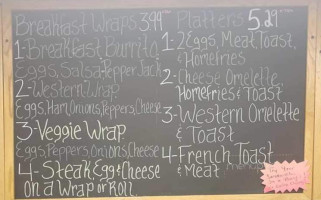 Breakfast Wraps 3.99
1-Breakfast Burrito
Eggs, Salsa, Pepper Jack
2-Western Wrap
Eggs, Ham, Onions, Peppers, Cheese
3-Veggie Wrap
Eggs, Peppers, Onions, Cheese
4-Steak Egg & Cheese
on a Wrap or Roll
Platters 5.29
1-2 Eggs, Meat, Toast,
& Homefries
2-Cheese Omelette
Homefries & Toast
3-Western Omelette
& Toast
4-French Toast
& Meat